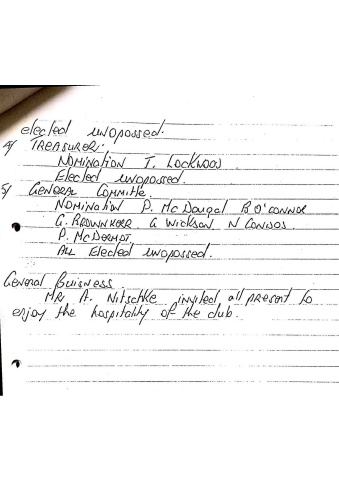 elected unopossed.
4/ TREASURER:
NOMINATION T. LOCKWOOD
Elected unopossed.
5/ GENERAL COMMITTE.
NOMINATION P. McDougal B O'CONNOR
G. G WICKSON N
P. McDERMOT
ALL Elected unopossed.
General Buisness
MR A. Nitschke invited all present to
enjoy the hospitality of the club.